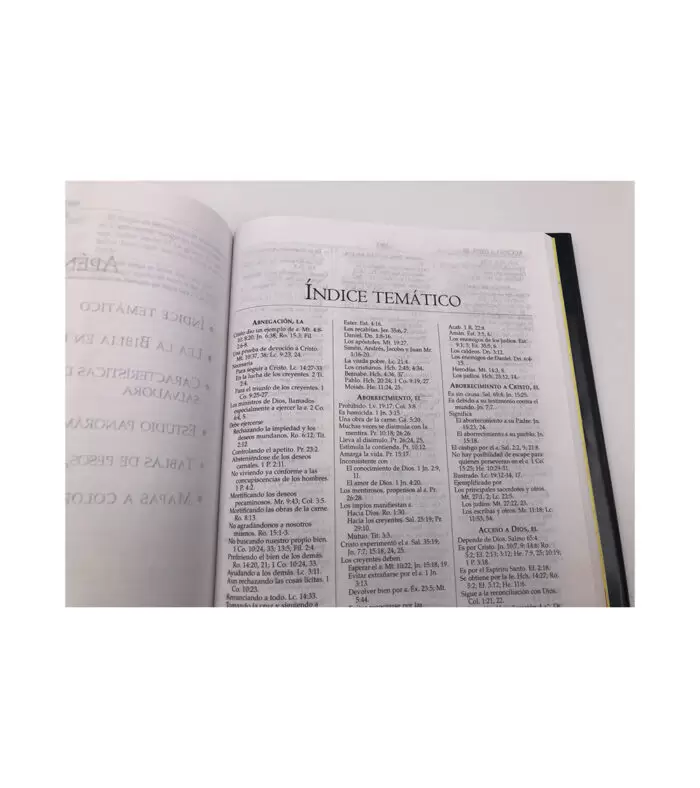 APÉN
ÍNDICE TEMÁTICO
LEA LA BIBLIA EN
CARACTERÍSTICAS D
SALVADORA
ESTUDIO PANORAM
TABLAS DE PESOS,
MAPAS A COLOR
ÍNDICE TEMÁTICO
ABNEGACIÓN, LA
Cristo dio un ejemplo de a. Mt. 4:8-
10; 8:20; Jn. 6:38; Ro. 15:3; Fil.
Una prueba de devoción a Cristo.
Mt. 10:37, 38; Lc. 9:23, 24.
Necesaria
Para seguir a Cristo. Lc. 14:27-33.
En la lucha de los creyentes. 2 Ti.
2:4.
Para el triunfo de los creyentes. 1
Co. 9:25-27
Los ministros de Dios, llamados
especialmente a ejercer la a. 2 Co.
Debe ejercerse
Rechazando la impiedad y los
deseos mundanos. Ro. 6:12; Tit.
2:12
Controlando el apetito. Pr. 23:2.
Absteniéndose de los deseos
carnales. 1 P. 2:11.
No viviendo ya conforme a las
concupiscencias de los hombres.
1 P. 4:2.
Mortificando los deseos
pecaminosos. Mr. 9:43; Col. 3:5.
Mortificando las obras de la carne.
Ro. 8:13.
No agradándonos a nosotros
mismos. Ro. 15:1-3.
No buscando nuestro propio bien.
1 Co. 10:24, 33; 13:5; Fil. 2:4.
Prefiriendo el bien de los demás
Ro. 14:20, 21; 1 Co. 10:24, 33.
Ayudando a los demás. Lc. 3:11.
Aun rechazando las cosas lícitas. 1 Co.
10:23.
Renunciando a todo. Lc. 14:33.
Tomando la cruz y siguiendo a
Ester. Est. 4:16.
Los recabitas. Jer. 35:6, 7.
Daniel. Dn. 1:8-16.
Los apóstoles. Mt. 19:27.
Simón, Andrés, Jacobo y Juan Mr.
1:16-20.
La viuda pobre. Lc. 21:4.
Los cristianos. Hch. 2:45; 4:34.
Bernabé. Hch. 4:36, 37.
Pablo. Hch. 20:24; 1 Co. 9:19, 27
Moisés. He. 11:24, 25.
ABORRECIMIENTO, EL
Prohibido. Lv. 19:17; Col. 3:8.
Es homicida. 1 Jn. 3:15.
Una obra de la carne. Gá. 5:20.
Muchas veces se disimula con la
mentira. Pr. 10:18; 26:26.
Lleva al disimulo. Pr. 26:24, 25.
Estimula la contienda. Pr. 10:12.
Amarga la vida. Pr. 15:17.
Inconsistente con
El conocimiento de Dios. 1 Jn. 2:9,
11.
El amor de Dios. 1 Jn. 4:20.
Los mentirosos, propensos al a. Pr.
26:28.
Los impíos manifiestan a.
Hacia Dios. Ro. 1:30.
Hacia los creyentes. Sal. 25:19; Pr.
29:10.
Mutuo. Tit. 3:3.
Cristo experimentó el a. Sal. 35:19;
Jn. 7:7; 15:18, 24, 25.
Los creyentes deben
Esperar el a. Mt. 10:22; Jn. 15:18, 19.
Evitar extrañarse por el a. 1 Jn.
3:13.
Devolver bien por a. Éx. 23:5; Mt.
5:44.
por las
Acab. 1 R. 22:8.
Amán. Est. 3:5, 6.
Los enemigos de los judíos. Est.
9:1, 5; Ez. 35:5, 6.
Los caldeos. Dn. 3:12.
Los enemigos de Daniel. Dn. 6:4-
15.
Herodías. Mt. 14:3, 8.
Los judíos. Hch. 23:12, 14.
ABORRECIMIENTO A CRISTO, EL
Es sin causa. Sal. 69:4; Jn. 15:25.
Es debido a su testimonio contra el
mundo. Jn. 7:7.
Significa
El aborrecimiento a su Padre. Jn.
15:23, 24.
El aborrecimiento a su pueblo. Jn.
15:18.
El castigo por el a. Sal. 2:2, 9; 21:8.
No hay posibilidad de escape para
quienes perseveran en el a. 1 Co.
15:25; He. 10:29-31.
Rectarlo. Lc. 19:12-14, 17.
Ejemplificado por
Los principales sacerdotes y otros.
Mt. 27:1, 2; Lc. 22:5.
Los judíos. Mt. 27:22, 23.
Los escribas y otros. Mr. 11:18; Lc.
11:53, 54.
ACCESO A DIOS, EL
Depende de Dios. Salmo 65:4.
Es por Cristo. Jn. 10:7, 9; 14:6; Ro.
5:2; Ef. 2:13; 3:12; He. 7:19, 25; 10:19;
1 P. 3:18.
Es por el Espíritu Santo. Ef. 2:18.
Se obtiene por la fe. Hch. 14:27; Ro.
5:2; Ef. 3:12; He. 11:6.
Sigue a la reconciliación con Dios.
Col. 1:21, 22.